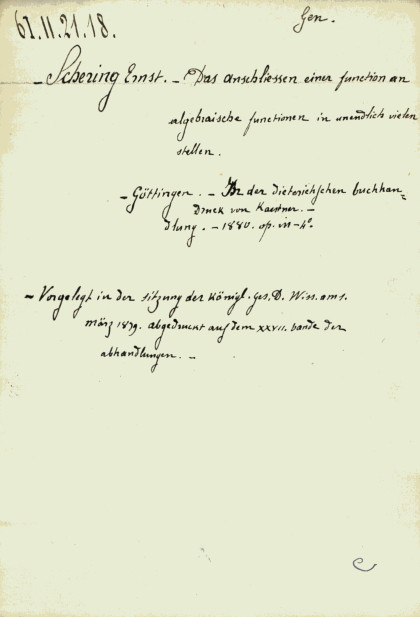 61.11.21.18.
Gen.
– Schering Ernst. – Das anschliessen einer function an
algebraische functionen in unendlich vielen
stellen.
– Göttingen. – In der dieterich'schen buchhan–
Druck von Kaestner. –
dlung. – 1880. op. in – 4º.
– Vorgelegt in der sitzung der königl. ges. D. Wiss. am 1.
märz 1879. abgedruckt auf dem XXVII. bande der
abhandlungen. –